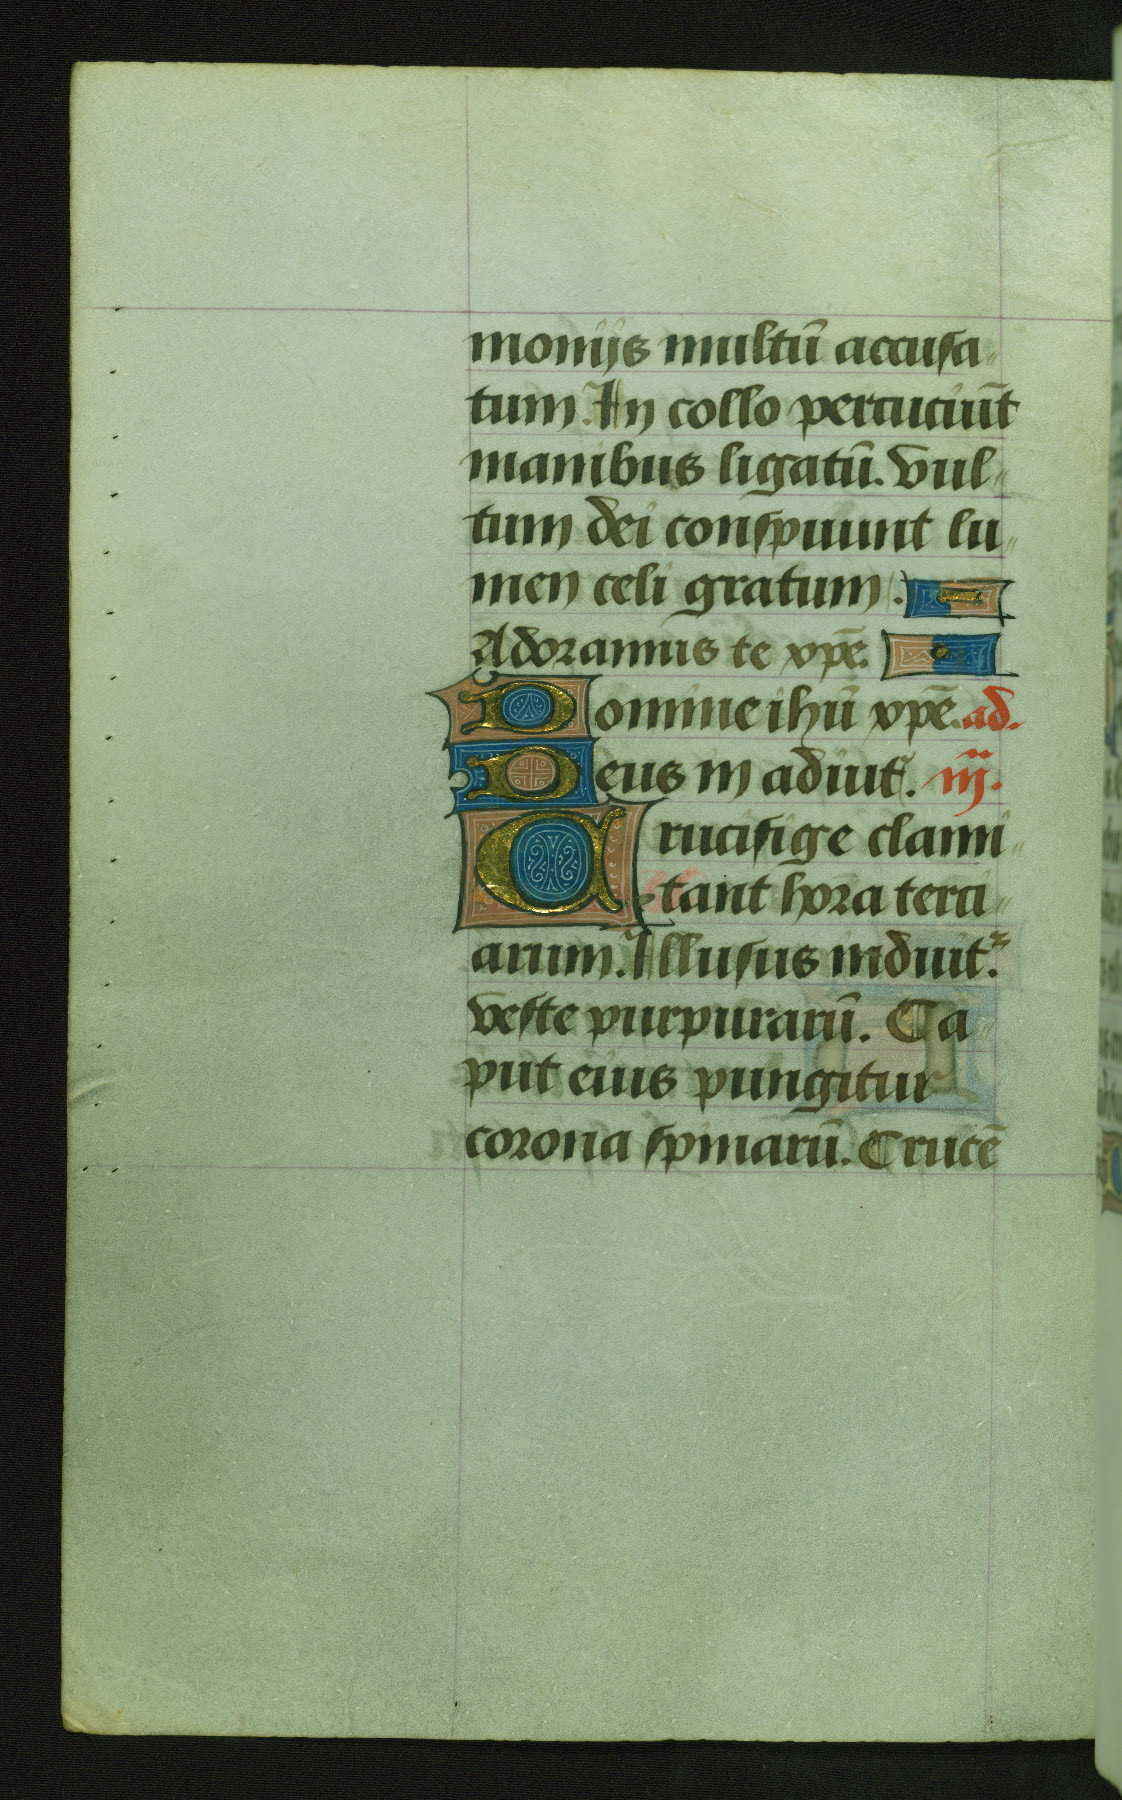 monijs multū accusa
tum. In collo percuciūt
manibus ligatū. Vul
tum dei conspuunt lu
men celi gratum.
Adoramus te xpē.
Domine ihū xpē. ad.
Deus in adiut. iij.
Crucifige clami
tant hora terci
arum. Illusus induit.
veste purpurarū. Ca
put eius pungitur
corona spinarū. Crucē